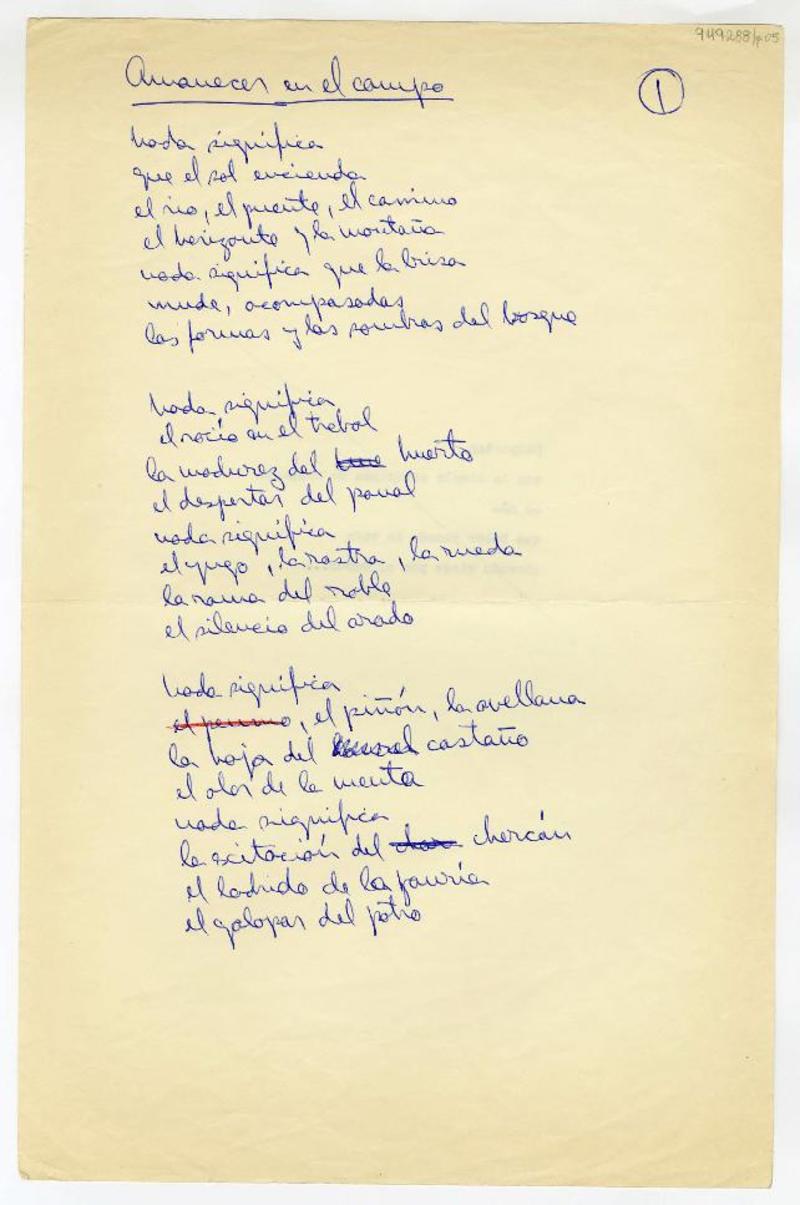 949288/p05
Amanecer en el campo
1
Nada significa
que el sol encienda
el rio, el puente, el camino
el horizonte y la montaña
nada significa que la brisa
mude, acompasadas
las formas y las sombras del bosque
Nada significa
el rocío en el trebol
la madurez del huerto
el despertar del panal
nada significa
el yugo, la rastra, la rueda
la rama del roble
el silencio del arado
Nada significa
el peumo, el piñón, la avellana
la hoja del castaño
el olor de la menta
nada significa
la excitación del chercán
el ladrido de la jauría
el galopar del potro